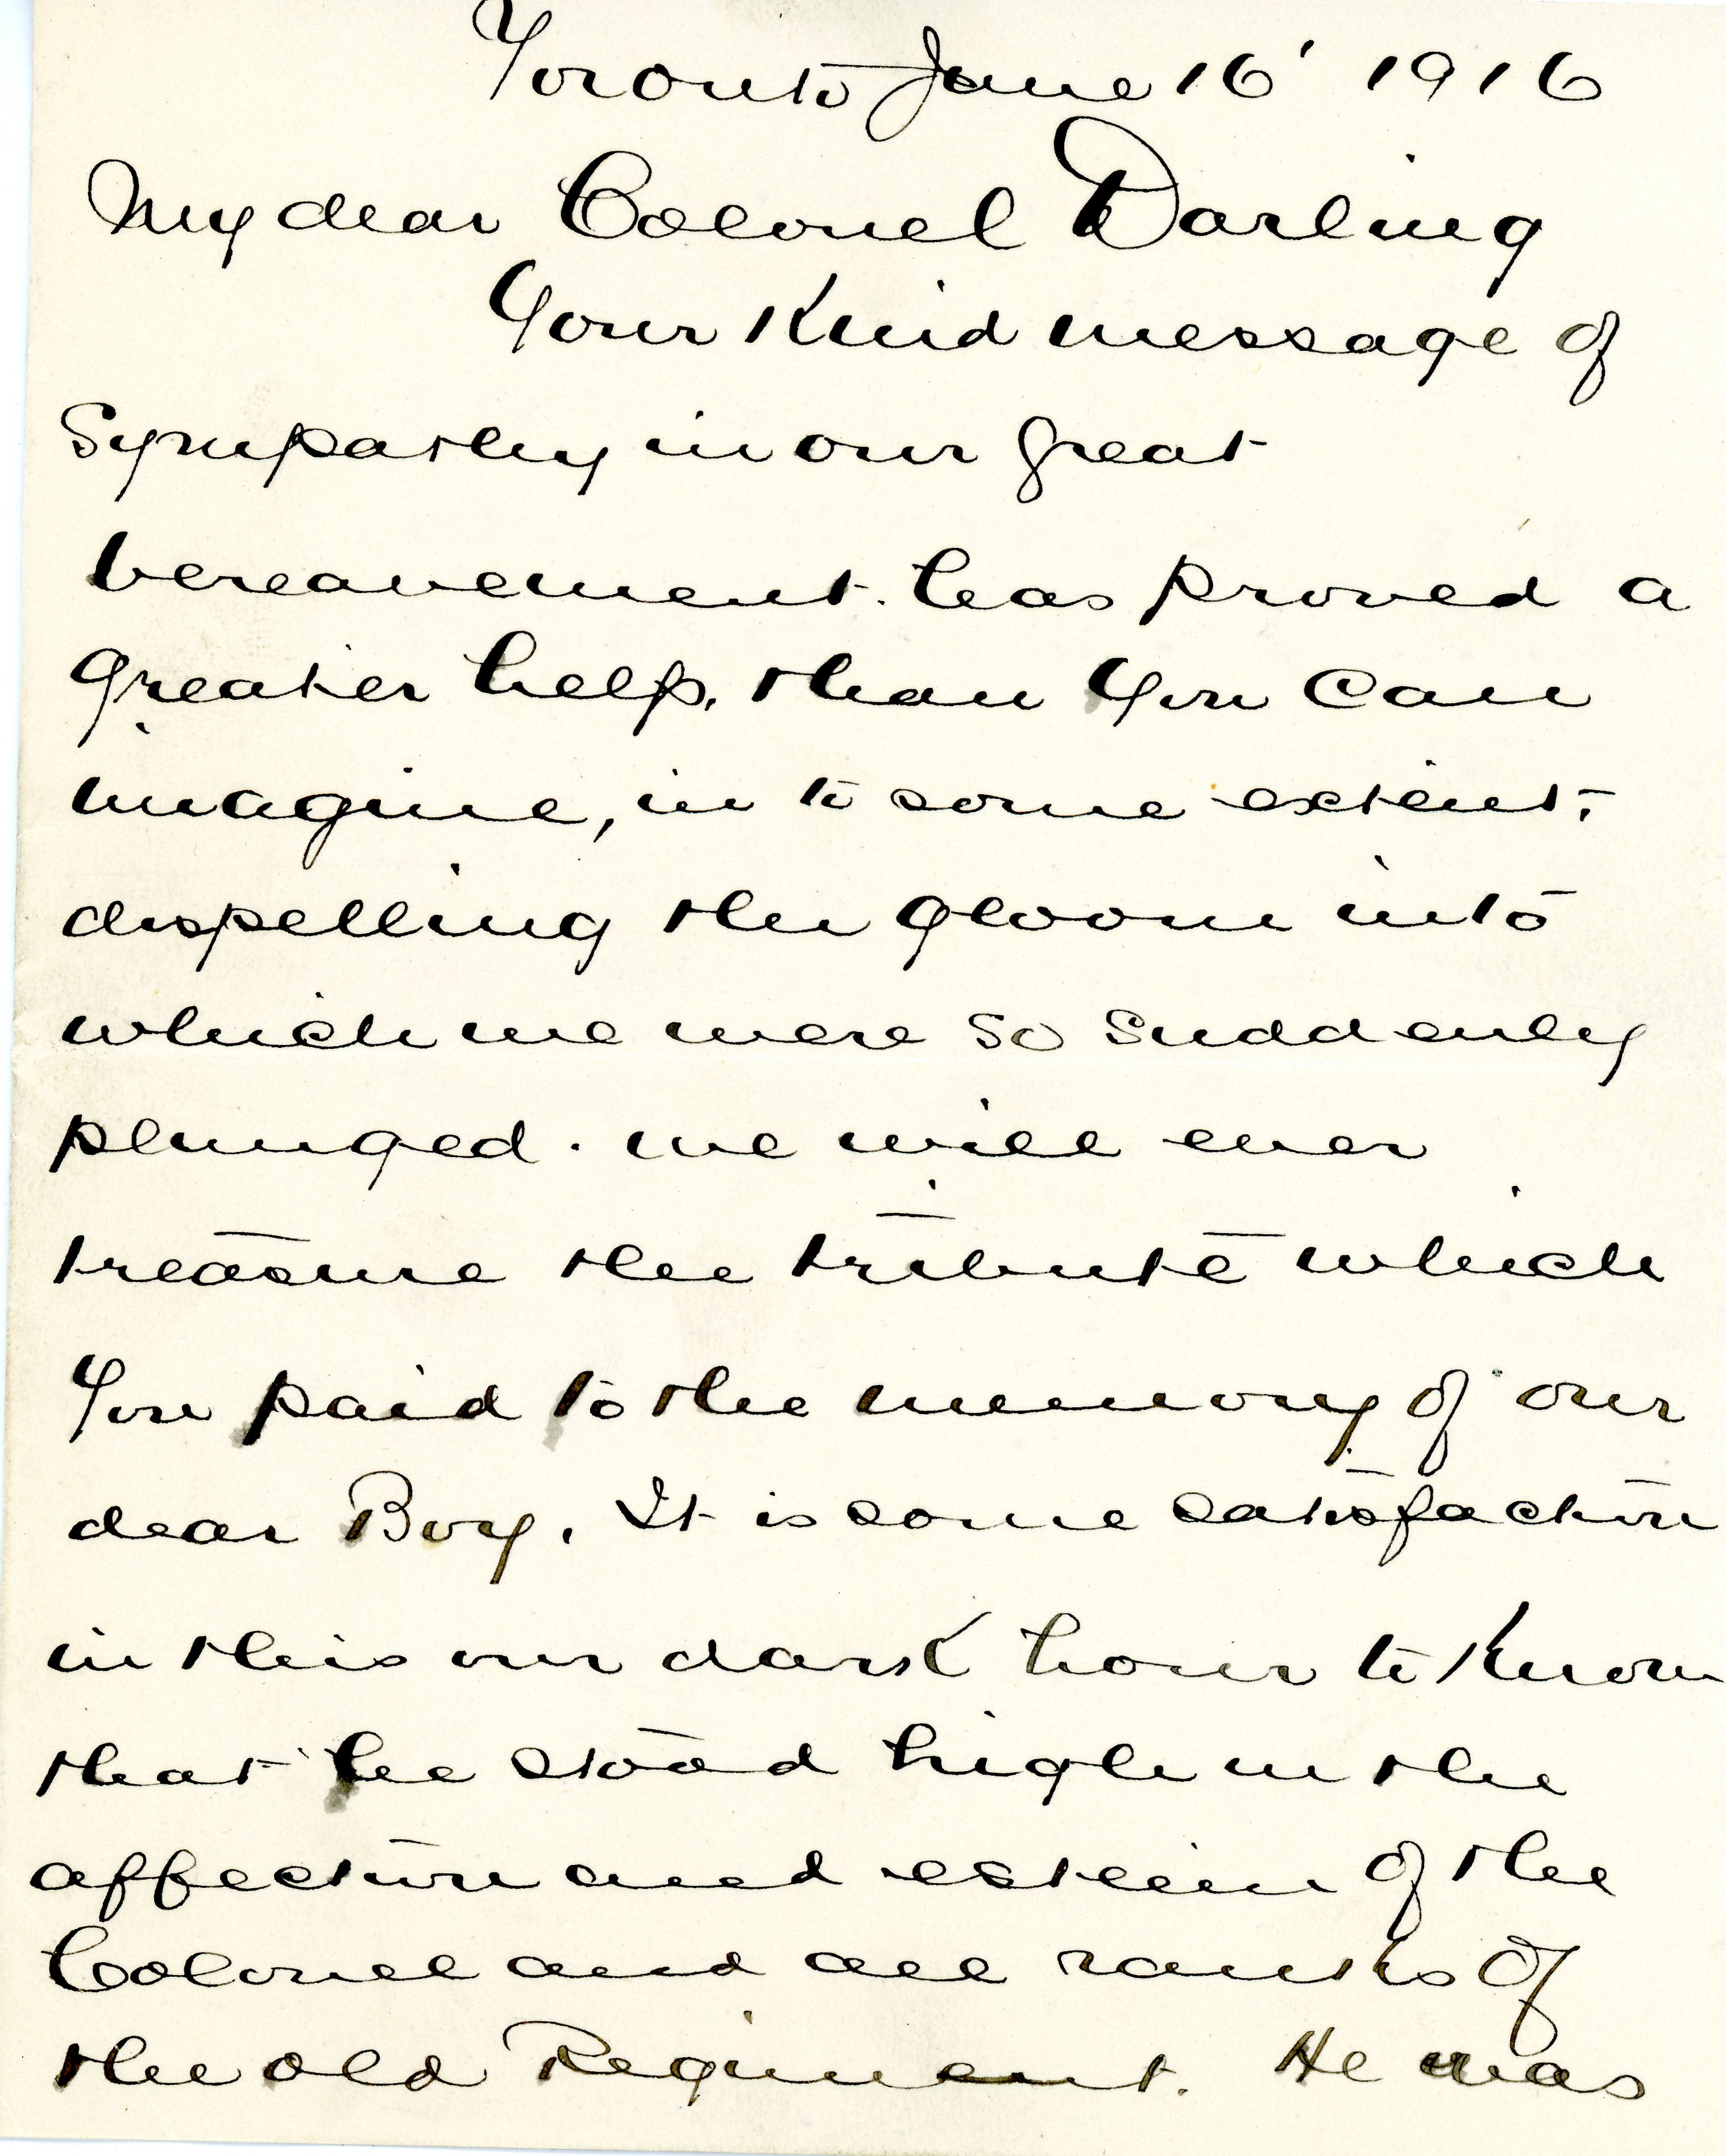 Toronto June 16' 1916
My dear Colonel Darling
Your Kind message of
Sympathy in our great
bereavement. has proved a
greater help, than you can
imagine, in to some extent,
dispelling the gloom into
which we were so suddenly
plunged. we will ever
treasure the tribute which
You paid to the memory of our
dear Boy. It is some satisfaction
in this our dark hour to Know
that he stood high in the
affection and esteem of the
Colonel and all ranks of
the old Regiment. He was